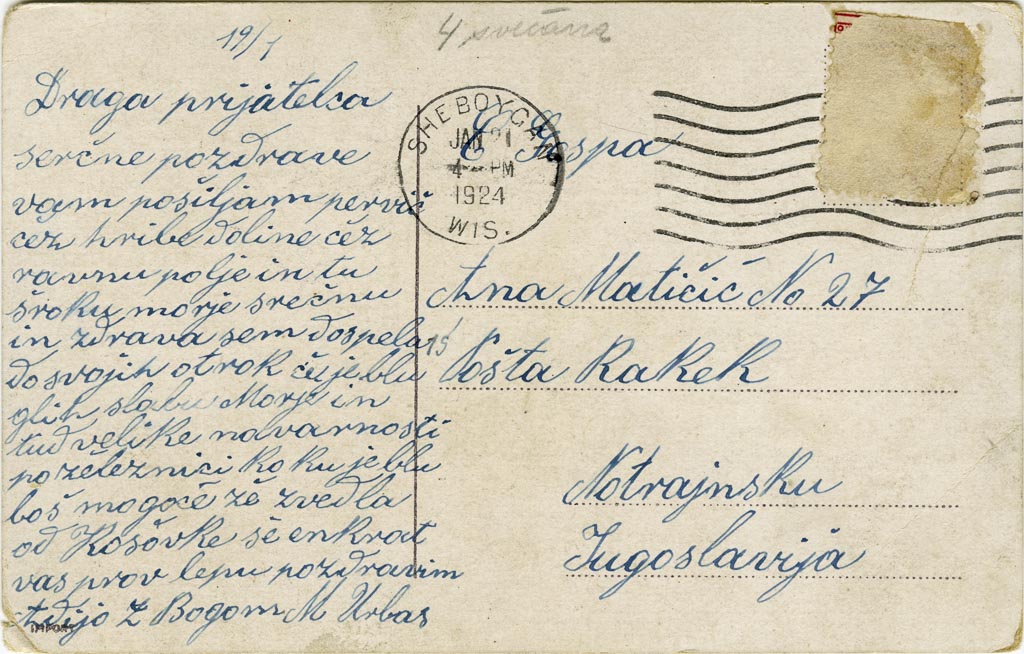 19/1
4 svečana
Draga prijatelca
serčne pozdrave
vam pošiljam pervič
čez hribe doline čez
ravnu polje in tu
šroku morje srečnu
in zdrava sem dospela
do svojih otrok če je blu
glih slabu Morje in
tud velike navarnosti
po železnici koku je blu
boš mogoče že zvedla
od Košovke še enkrat
vas prov lepu pozdravim
Adijo Z Bogom M Urbas
IMPORT
SHEBOYGAN
JAN 21
4 PM
1924
WIS.
C Gospa
Ana Matičič No 27
15
Pošta Rakek
Notrajnsku
Jugoslavija